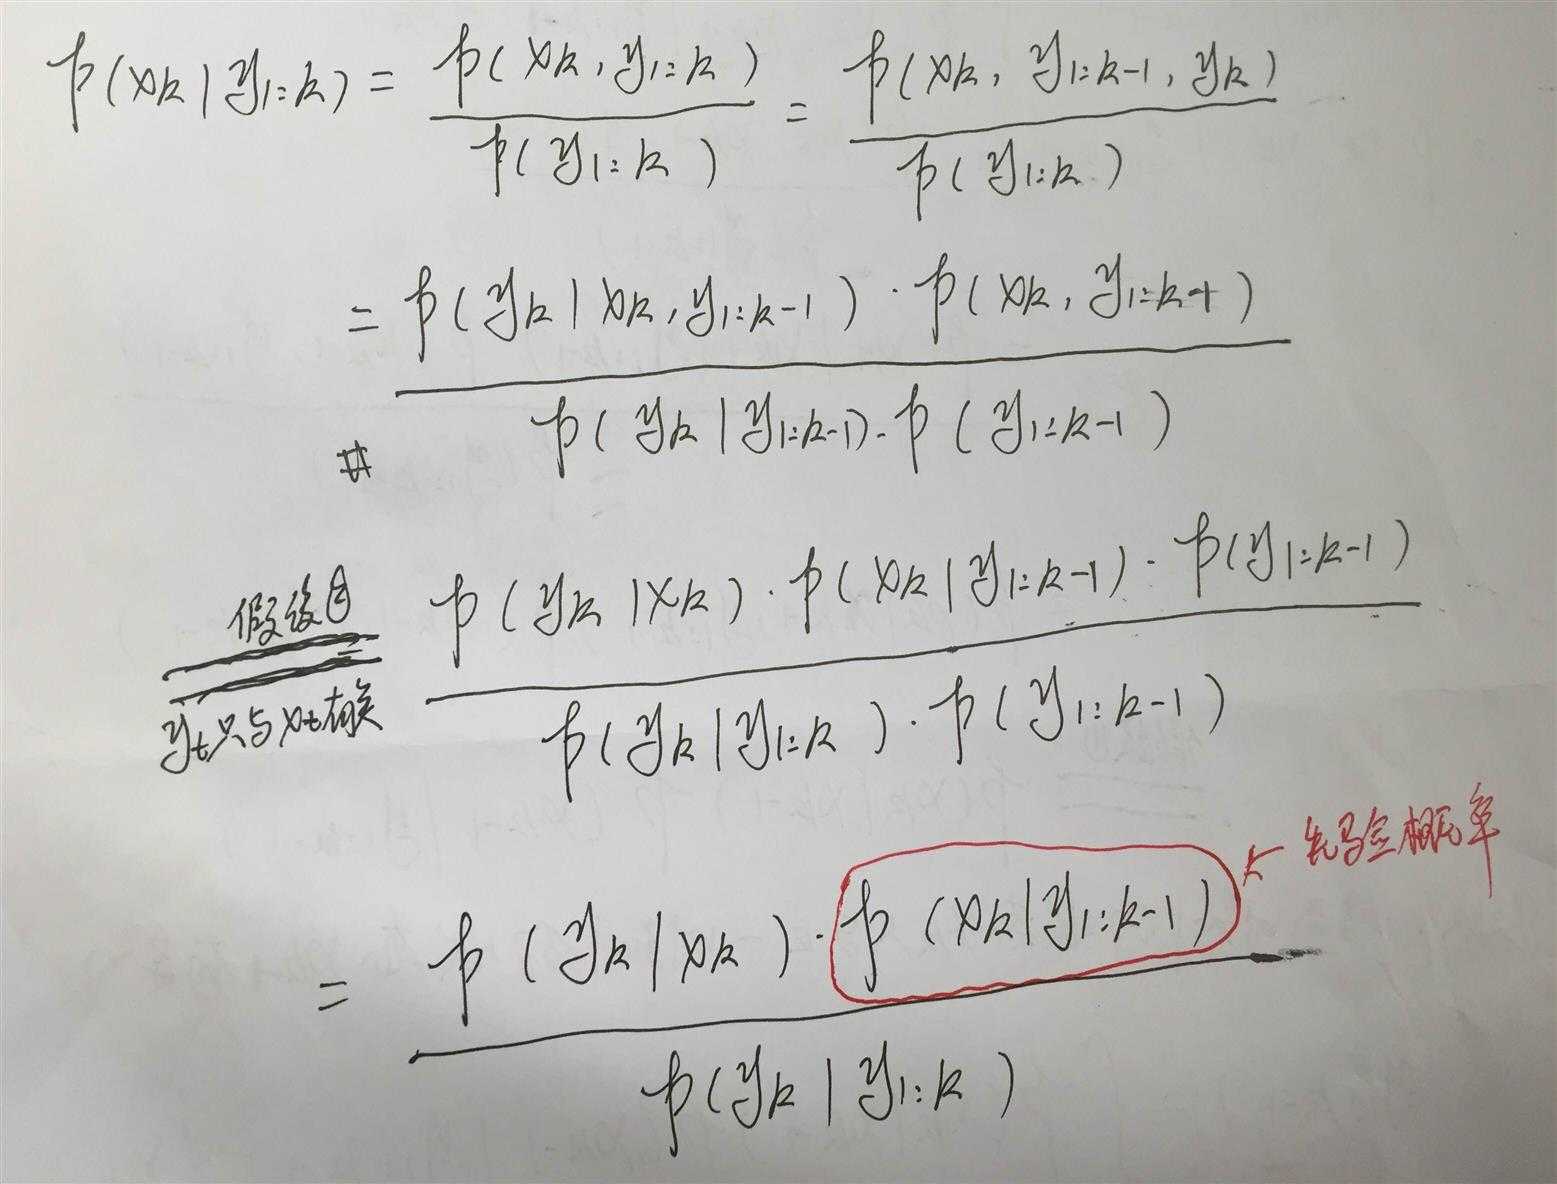 p(xk|y1:k) = p(xk, y1:k) / p(y1:k) = p(xk, y1:k-1, yk) / p(y1:k)
= p(yk|xk, y1:k-1)·p(xk, y1:k-1) / p(yk|y1:k-1)·p(y1:k-1)
假设② yt只与xt有关 p(yk|xk)·p(xk|y1:k-1)·p(y1:k-1) / p(yk|y1:k)·p(y1:k-1)
先验概率
= p(yk|xk)·p(xk|y1:k-1) / p(yk|y1:k)